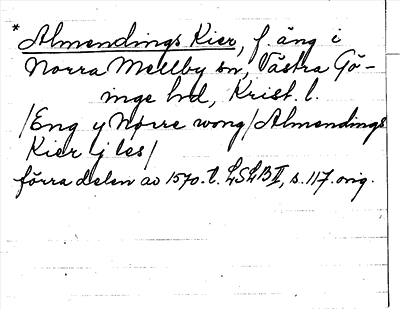 * Almendings Kier, f. äng i
Norra Mellby sn, Västra Gö-
inge hd, Krist. l.
/Eng y Nørre wong/Almendings
Kier ij les/
förra delen av 1570.t. LSLB II, s. 117. orig.